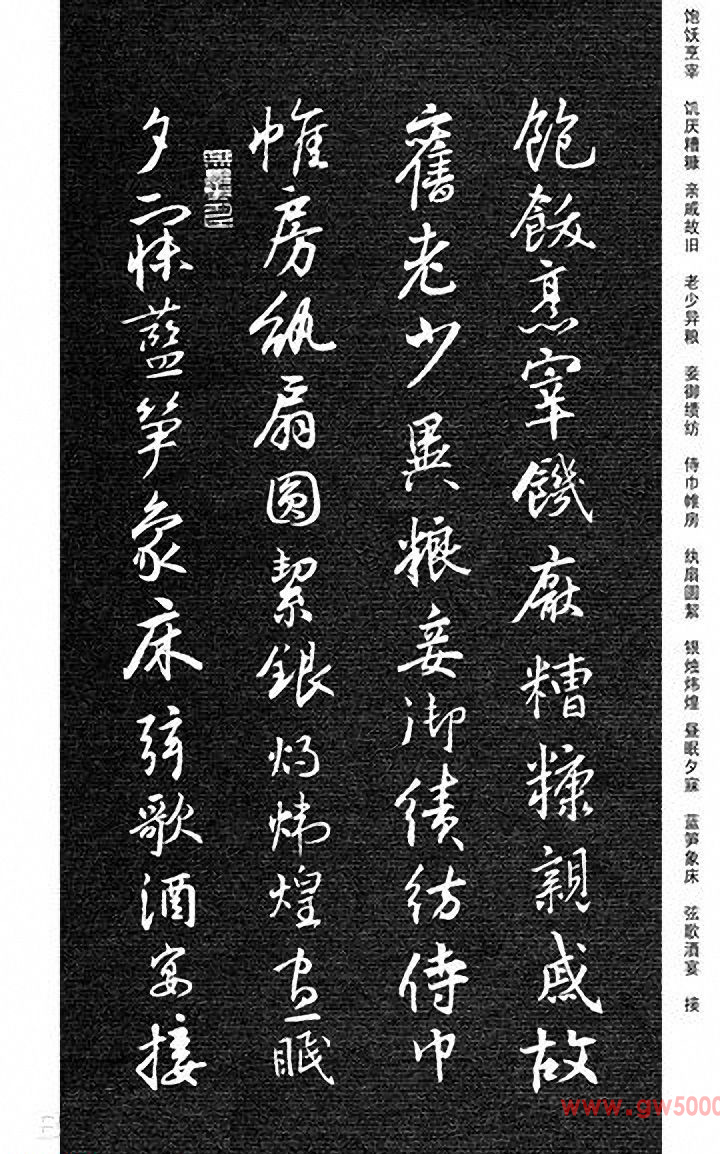 飽飫烹宰飢厭糟糠親戚故
舊老少異粮妾御績紡侍巾
帷房紈扇圓絜銀燭煒煌晝眠
夕寐藍笋象床弦歌酒宴接
饱饫烹宰 饥厌糟糠 亲戚故旧 老少异粮 妾御绩纺 侍巾帷房 纨扇圆絜 银烛炜煌 昼眠夕寐 蓝笋象床 弦歌酒宴 接
www.gw5000